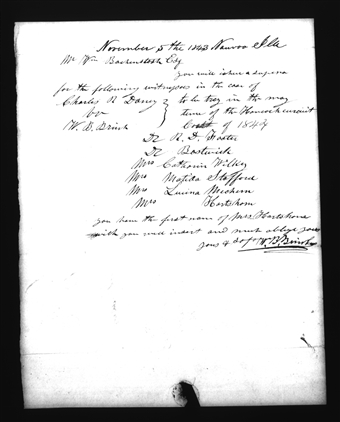 November 5 the 1843 Nauvoo Ills
Mr Wm Backenstoss Esq
you will ishue a supena
for the following witnesses in the case of
Charles R Dana } to be trey in the may
vs term of the Hancock circuit
W. B. Brink Cort of 1844
Dr R. D. Foster
Dr Bostwick
Mrs Catharin Wilkey
Mrs Matilda Stafford
Mrs Lucina Mechem
Mrs Hartshorn
you have the first name of Mrs Hartshorne
which you will insert and much oblige yours
yours &
W. B. Brink